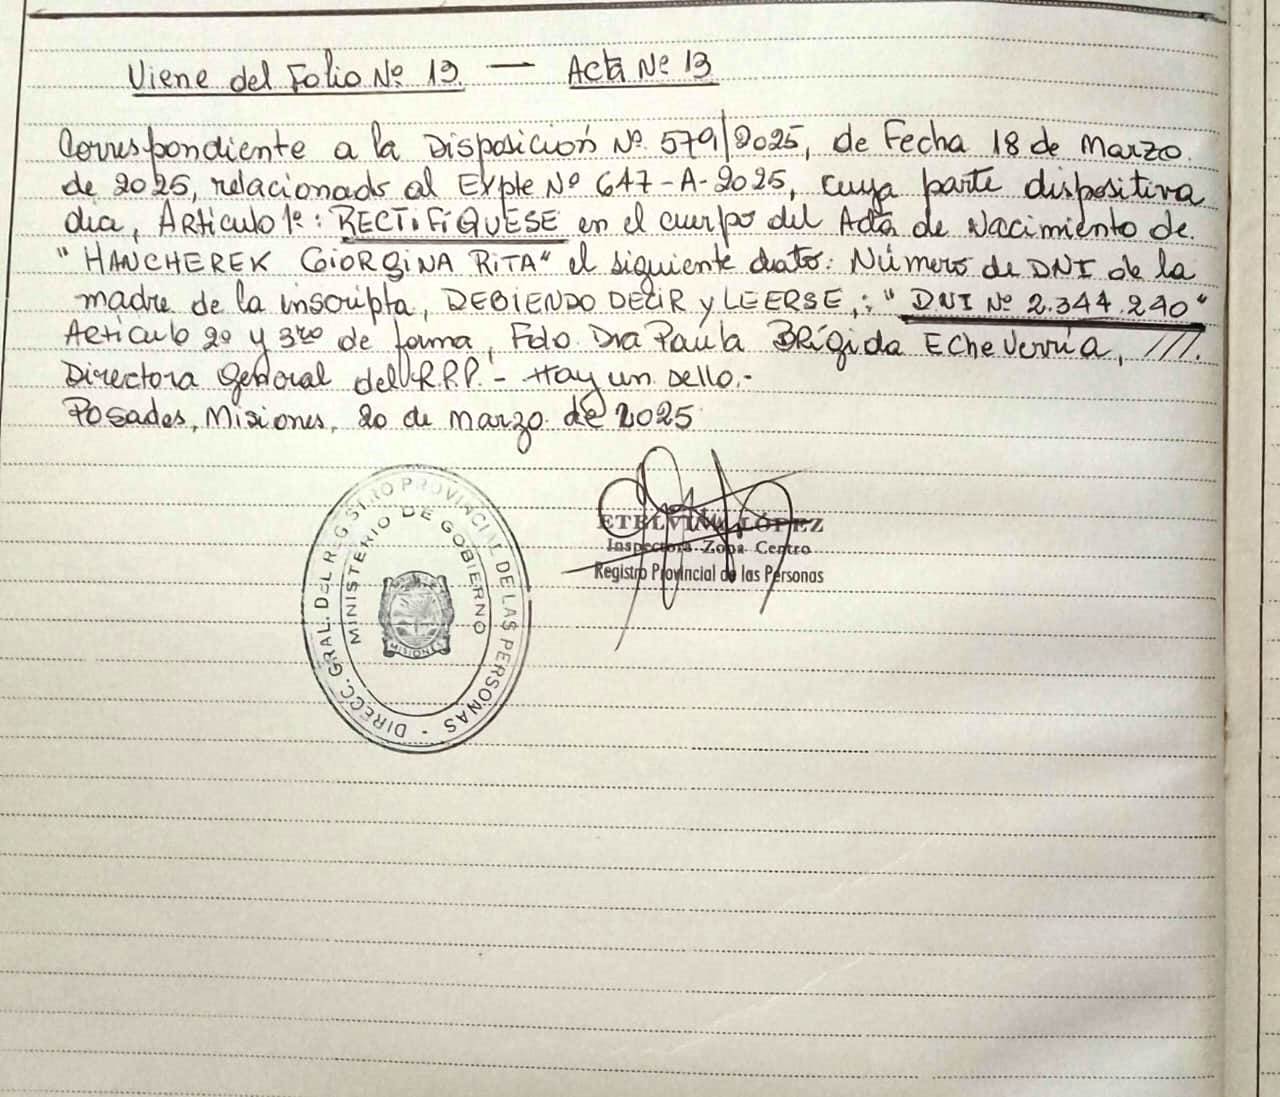 Viene del Folio Nº 13 — Acta Nº 13
Correspondiente a la Disposición Nº 579/2025, de Fecha 18 de Marzo
de 2025, relacionado al Expte Nº 647-A-2025, cuya parte dispositiva
dia, Articulo 1º: RECTIFIQUESE en el cuerpo del Acta de Nacimiento de
"HANCHEREK GIORGINA RITA" el siguiente dato: Número de DNI de la
madre de la inscripta, DEBIENDO DECIR y LEERSE,: "DNI Nº 2.344.290"
Articulo 2º y 3ro de forma, Fdo. Dra Paula BRígida Echeverría, ///.
Directora General del R.R.P.- Hay un sello.-
Posadas, Misiones, 20 de marzo de 2025
DIRECC. GRAL. DEL REGISTRO PROVINCIAL DE LAS PERSONAS -
MINISTERIO DE GOBIERNO
MISIONES
ETELVINA LÓPEZ
Inspectora Zona Centro
Registro Provincial de las Personas